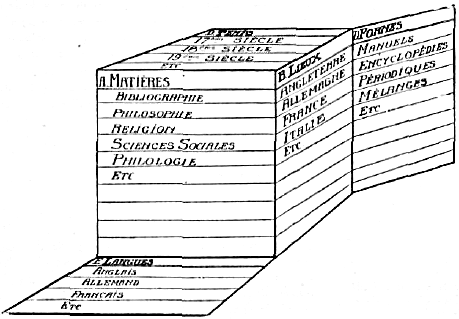 17ème SIÈCLE
18ème SIÈCLE
19ème SIÈCLE
ETC
A. MATIÈRES
BIBLIOGRAPHIE
PHILOSOPHIE
RELIGION
SCIENCES SOCIALES
PHILOLOGIE
ETC
B LIEUX
ANGLETERRE
ALLEMAGNE
FRANCE
ITALIE
ETC
FORMES
MANUELS
ENCYCLOPÉDIES
PÉRIODIQUES
MÉLANGES
ETC
E LANGUES
ANGLAIS
ALLEMAND
FRANCAIS
ETC